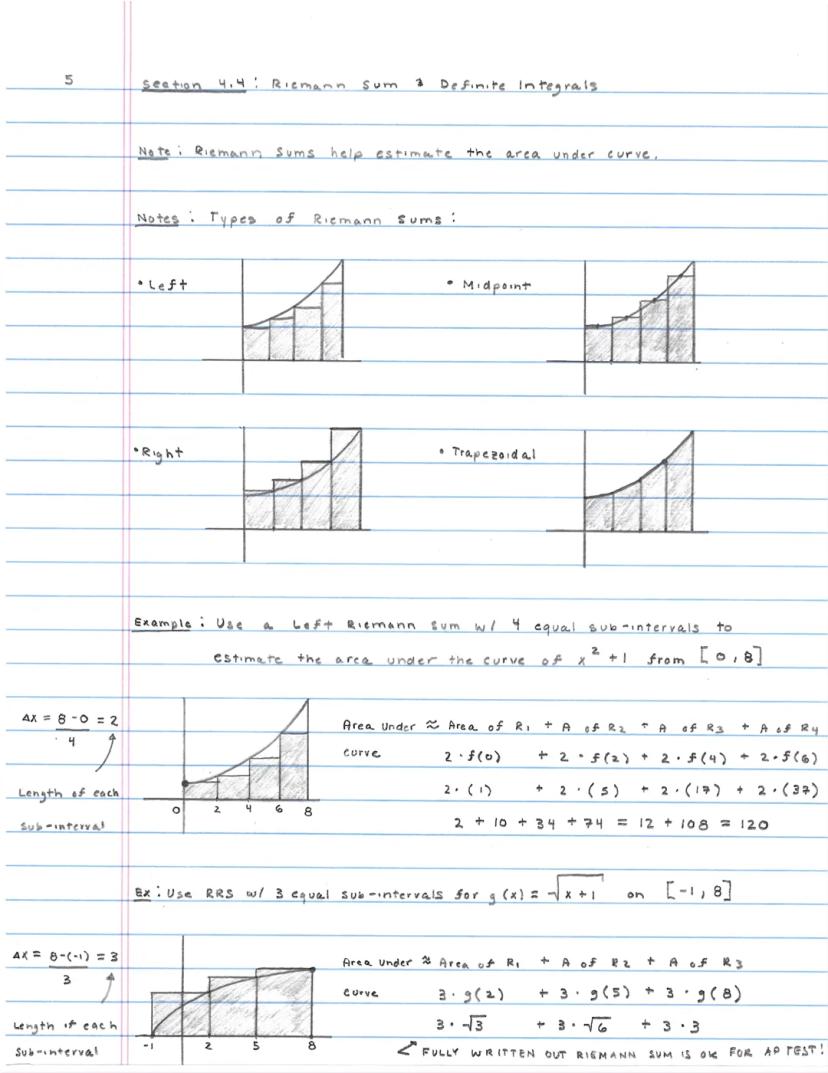 5
Section 4.4: Riemann Sum & Definite Integrals
Note: Riemann Sums help estimate the area under curve.
Notes: Types of Riemann Sums:
• Left
• Midpoint
• Right
• Trapezoidal
Example: Use a Left Riemann Sum w/ 4 equal sub-intervals to
estimate the area under the curve of x² + 1 from [0, 8]
Δx = 8-0 = 2
4
Length of each
sub-interval
0 2 4 6 8
Area Under ≈ Area of R₁ + A of R₂ + A of R₃ + A of R₄
curve 2 · f(0) + 2 · f(2) + 2 · f(4) + 2 · f(6)
2 · (1) + 2 · (5) + 2 · (17) + 2 · (37)
2 + 10 + 34 + 74 = 12 + 108 = 120
Ex: Use RRS w/ 3 equal sub-intervals for g(x) = √x+1 on [-1, 8]
Δx = 8-(-1) = 3
3
Length of each
Sub-interval
-1 2 5 8
Area Under ≈ Area of R₁ + A of R₂ + A of R₃
curve 3 · g(2) + 3 · g(5) + 3 · g(8)
3 · √3 + 3 · √6 + 3 · 3
FULLY WRITTEN OUT RIEMANN SUM IS OK FOR AP TEST!